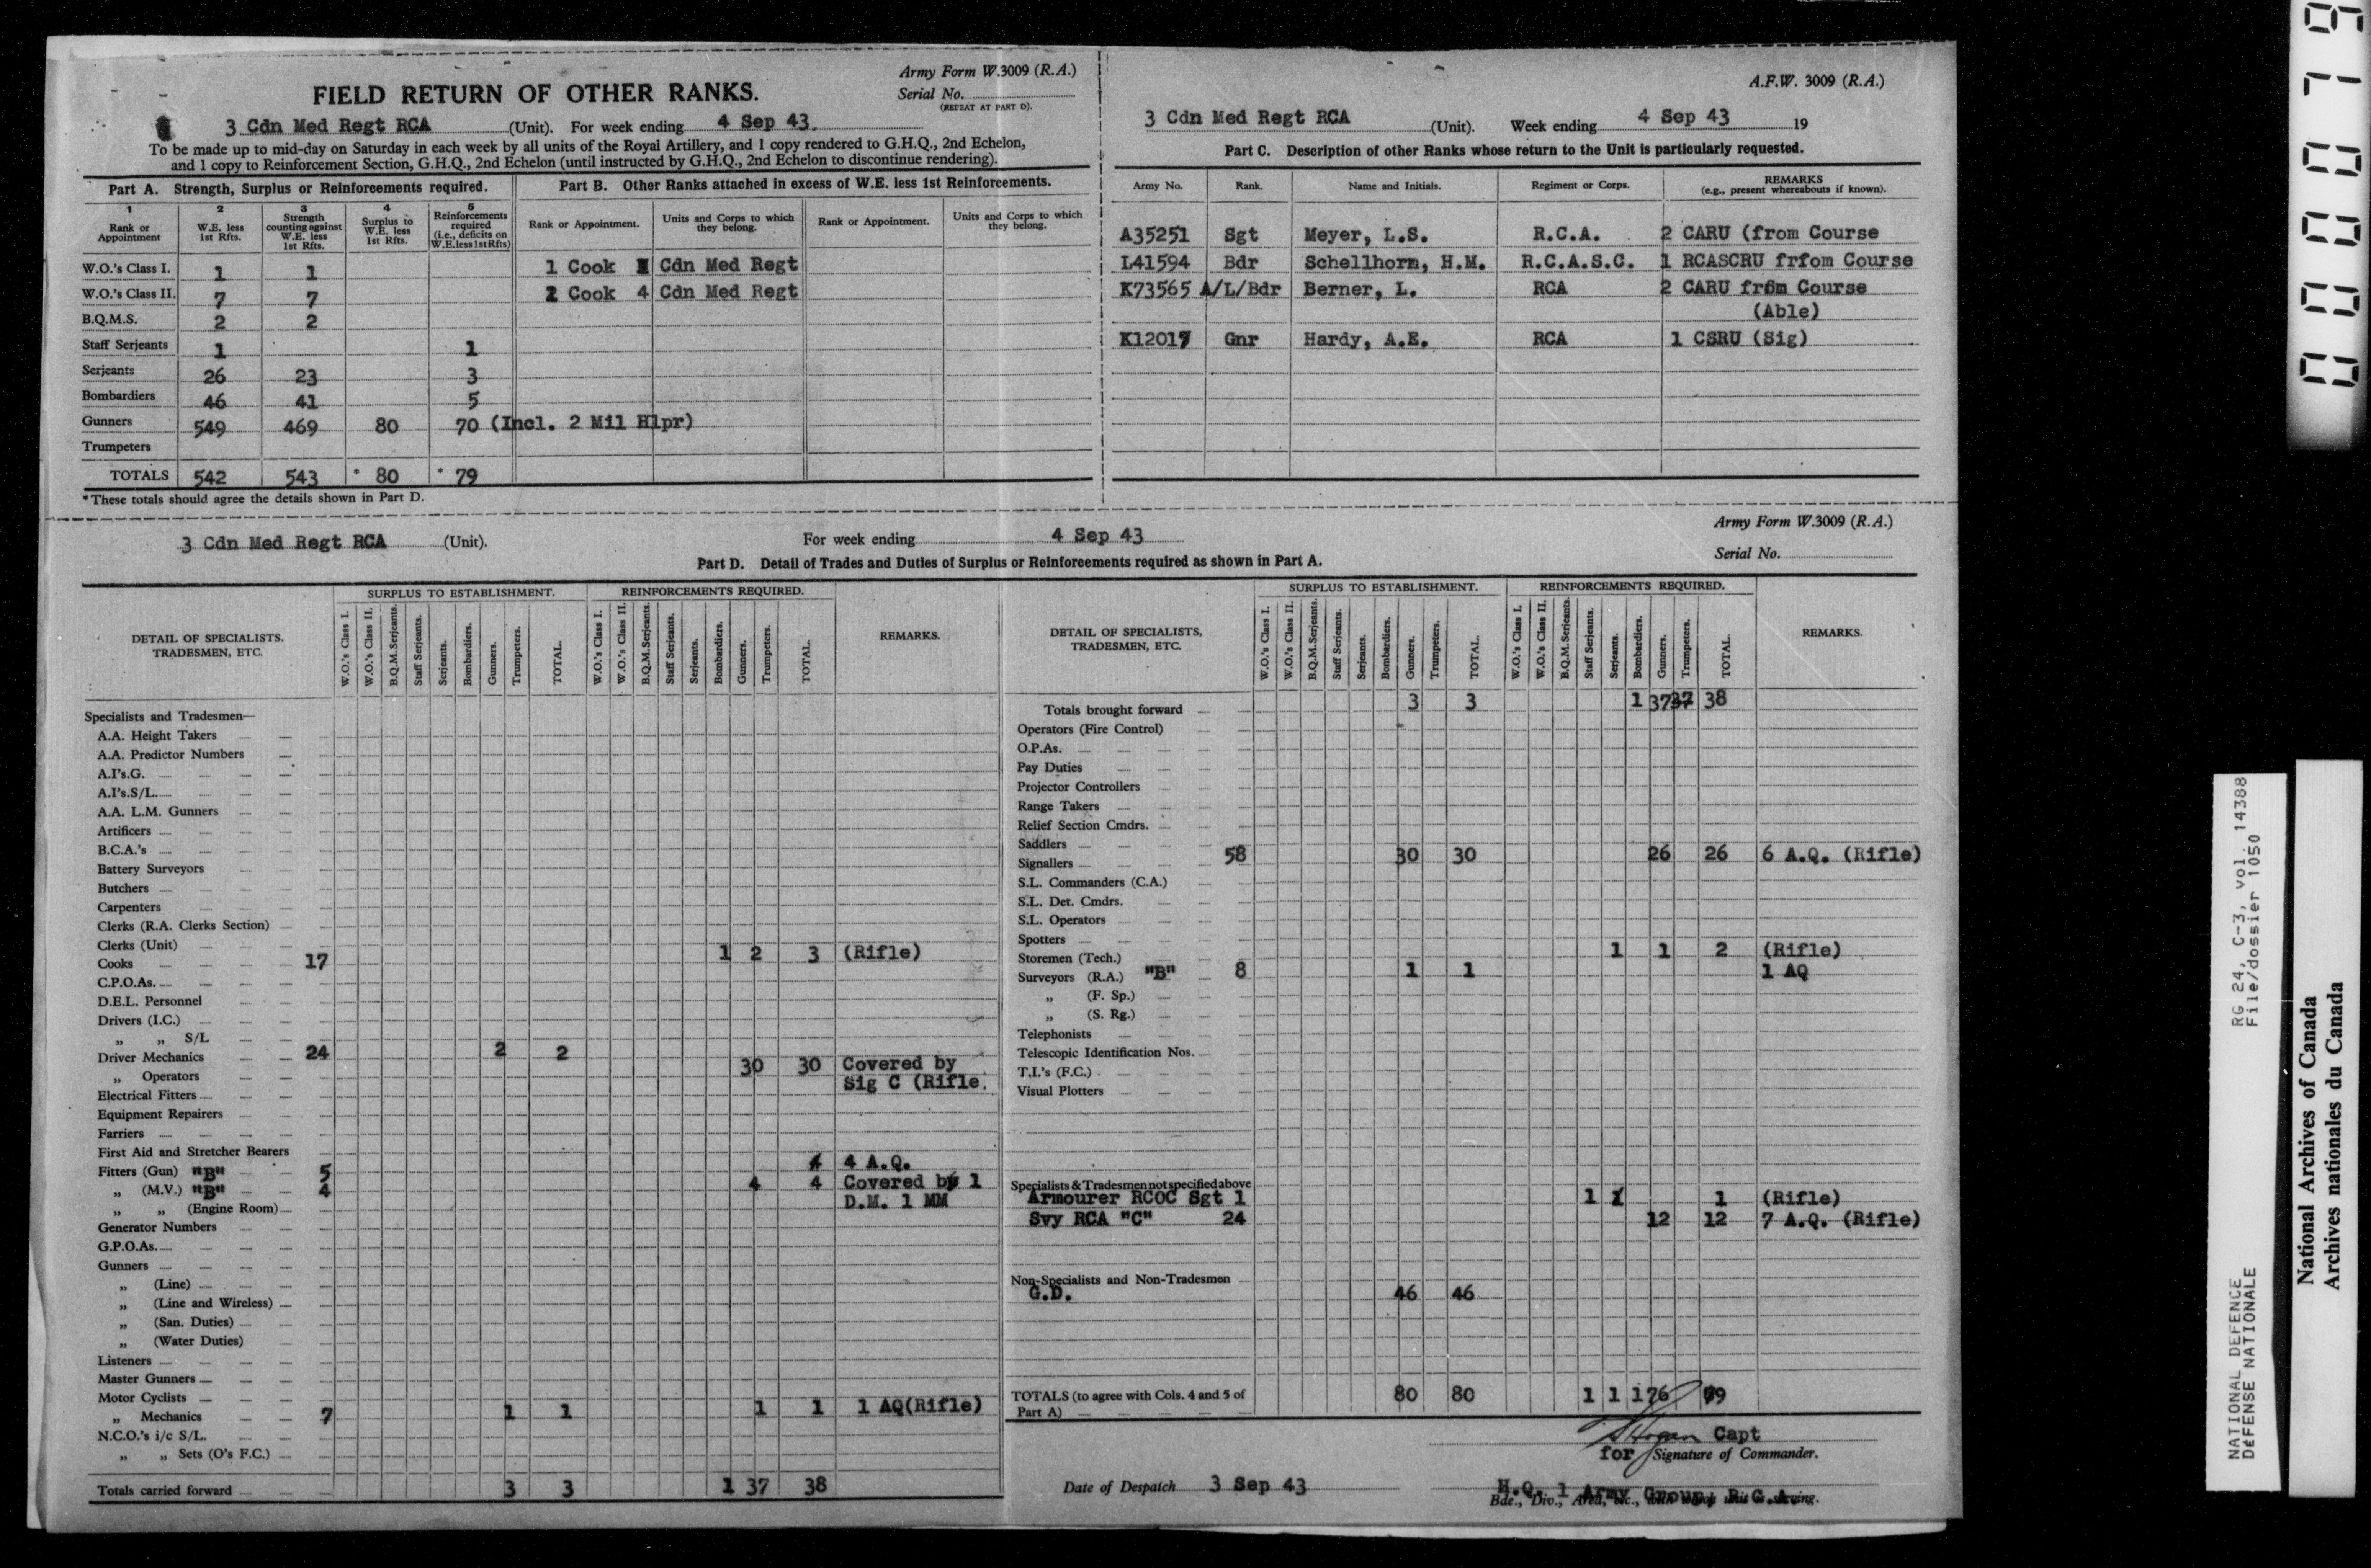 Army Form W.3009 (R.A.)
FIELD RETURN OF OTHER RANKS.
Serial No.
(REPEAT AT PART D).
3 Cdn Med Regt RCA (Unit). For week ending 4 Sep 43
To be made up to mid-day on Saturday in each week by all units of the Royal Artillery, and 1 copy rendered to G.H.Q., 2nd Echelon,
and 1 copy to Reinforcement Section, G.H.Q., 2nd Echelon (until instructed by G.H.Q., 2nd Echelon to discontinue rendering).
Part A. Strength, Surplus or Reinforcements required.
1 2 3 4 5
Rank or Appointment W.E. less 1st Rfts. Strength counting against W.E. less 1st Rfts. Surplus to W.E. less 1st Rfts. Reinforcements required (i.e., deficits on W.E. less 1st Rfts)
W.O.'s Class I. 1 1
W.O.'s Class II. 7 7
B.Q.M.S. 2 2
Staff Serjeants 1 1
Serjeants 26 23 3
Bombardiers 46 41 5
Gunners 549 469 80 70 (Incl. 2 Mil Hlpr)
Trumpeters
TOTALS 542 543 * 80 * 79
*These totals should agree the details shown in Part D.
Part B. Other Ranks attached in excess of W.E. less 1st Reinforcements.
Rank or Appointment. Units and Corps to which they belong. Rank or Appointment. Units and Corps to which they belong.
1 Cook Cdn Med Regt
Cook 4 Cdn Med Regt
A.F.W. 3009 (R.A.)
3 Cdn Med Regt RCA (Unit). Week ending 4 Sep 43 19
Part C. Description of other Ranks whose return to the Unit is particularly requested.
Army No. Rank. Name and Initials. Regiment or Corps. REMARKS (e.g., present whereabouts if known).
A35251 Sgt Meyer, L.S. R.C.A. 2 CARU (from Course
L41594 Bdr Schellhorn, H.M. R.C.A.S.C. 1 RCASCRU frfom Course
K73565 A/L/Bdr Berner, L. RCA 2 CARU from Course
(Able)
K12017 Gnr Hardy, A.E. RCA 1 CSRU (Sig)
Army Form W.3009 (R.A.)
3 Cdn Med Regt RCA (Unit). For week ending 4 Sep 43
Serial No.
Part D. Detail of Trades and Duties of Surplus or Reinforcements required as shown in Part A.
DETAIL OF SPECIALISTS. TRADESMEN, ETC.
SURPLUS TO ESTABLISHMENT.
W.O.'s Class I. W.O.'s Class II. B.Q.M.Serjeants. Staff Serjeants. Serjeants. Bombardiers. Gunners. Trumpeters. TOTAL.
REINFORCEMENTS REQUIRED.
W.O.'s Class I. W.O.'s Class II. B.Q.M.Serjeants. Staff Serjeants. Serjeants. Bombardiers. Gunners. Trumpeters. TOTAL.
REMARKS.
Specialists and Tradesmen—
A.A. Height Takers
A.A. Predictor Numbers
A.I's.G.
A.I's.S/L.
A.A. L.M. Gunners
Artificers
B.C.A.'s
Battery Surveyors
Butchers
Carpenters
Clerks (R.A. Clerks Section)
Clerks (Unit) 1 2 3 (Rifle)
Cooks 17
C.P.O.As.
D.E.L. Personnel
Drivers (I.C.)
„ „ S/L
Driver Mechanics 24 2 2
„ Operators 30 30 Covered by
Sig C (Rifle.
Electrical Fitters
Equipment Repairers
Farriers
First Aid and Stretcher Bearers
4 A.Q.
Fitters (Gun) "B" 5
„ (M.V.) "B" 4 4 4 Covered by 1
„ „ (Engine Room) D.M. 1 MM
Generator Numbers
G.P.O.As.
Gunners
„ (Line)
„ (Line and Wireless)
„ (San. Duties)
„ (Water Duties)
Listeners
Master Gunners
Motor Cyclists
„ Mechanics 7 1 1 1 1 1 AQ(Rifle)
N.C.O.'s i/c S/L.
„ „ Sets (O's F.C.)
Totals carried forward 3 3 1 37 38
DETAIL OF SPECIALISTS, TRADESMEN, ETC.
SURPLUS TO ESTABLISHMENT.
W.O.'s Class I. W.O.'s Class II. B.Q.M.Serjeants. Staff Serjeants. Serjeants. Bombardiers. Gunners. Trumpeters. TOTAL.
REINFORCEMENTS REQUIRED.
W.O.'s Class I. W.O.'s Class II. B.Q.M.Serjeants. Staff Serjeants. Serjeants. Bombardiers. Gunners. Trumpeters. TOTAL.
REMARKS.
Totals brought forward 3 3 1 37 37 38
Operators (Fire Control)
O.P.As.
Pay Duties
Projector Controllers
Range Takers
Relief Section Cmdrs.
Saddlers
Signallers 58 30 30 26 26 6 A.Q. (Rifle)
S.L. Commanders (C.A.)
S.L. Det. Cmdrs.
S.L. Operators
Spotters
Storemen (Tech.) 1 1 2 (Rifle)
Surveyors (R.A.) "B" 8 1 1 1 AQ
„ (F. Sp.)
„ (S. Rg.)
Telephonists
Telescopic Identification Nos.
T.I.'s (F.C.)
Visual Plotters
Specialists & Tradesmen not specified above
Armourer RCOC Sgt 1 1 1 1 (Rifle)
Svy RCA "C" 24 12 12 7 A.Q. (Rifle)
Non-Specialists and Non-Tradesmen
G.D. 46 46
TOTALS (to agree with Cols. 4 and 5 of Part A) 80 80 1 1 1 76 79
Capt
for Signature of Commander.
Date of Despatch 3 Sep 43
H.Q. 1 Army Group, R.C.A.
Bde., Div., Area, etc., with which unit is serving.
000079
RG 24, C-3, vol. 14388
File/dossier 1050
NATIONAL DEFENCE
DÉFENSE NATIONALE
National Archives of Canada
Archives nationales du Canada